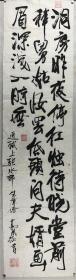 洞房昨夜停红烛待晓堂前
拜舅姑妆罢低声问夫婿画
眉深浅入时无